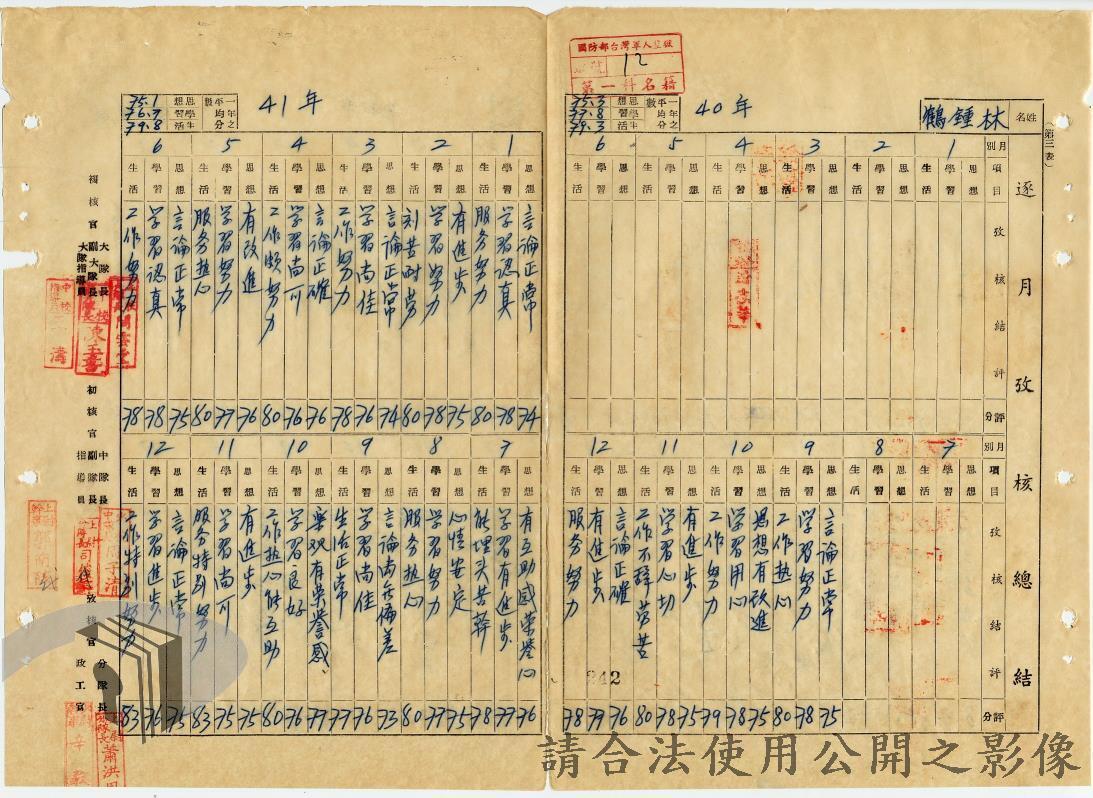 國防部台灣軍人監獄
12
第一科名籍
(第三表)
逐月攷核總結
姓名
林鍾鶴
40年
一年之平均分數
思想 75.3
學習 77.8
生活 79.3
月別 1 2 3 4 5 6
項目 思想 學習 生活 思想 學習 生活 思想 學習 生活 思想 學習 生活 思想 學習 生活 思想 學習 生活
攷核結評
評分
月別 7 8 9 10 11 12
項目 思想 學習 生活 思想 學習 生活 思想 學習 生活 思想 學習 生活 思想 學習 生活 思想 學習 生活
攷核結評
言論正常
學習努力
工作热心
思想有改進
學習用心
工作努力
有進步
學習心切
工作不辞劳苦
言論正確
有進步
服务努力
評分
75 78 80 75 78 79 75 78 80 76 77 78
242
41年
一年之平均分數
思想 75.1
學習 76.7
生活 79.8
1 2 3 4 5 6
思想 學習 生活 思想 學習 生活 思想 學習 生活 思想 學習 生活 思想 學習 生活 思想 學習 生活
言論正常
学習認真
服务努力
有進步
学習努力
刻苦耐劳
言論正常
学習尚佳
工作努力
言論正確
学習尚可
工作頗努力
有改進
学習努力
服务热心
言論正常
学習認真
工作努力
74 78 80 75 78 80 74 76 78 76 76 80 76 77 80 75 78 78
7 8 9 10 11 12
思想 學習 生活 思想 學習 生活 思想 學習 生活 思想 學習 生活 思想 學習 生活 思想 學習 生活
有互助感荣誉心
学習有進步
能埋头苦幹
心情安定
学習努力
服务热心
言論尚無偏差
学習尚佳
生活正常
樂观有榮誉感
学習良好
工作热心能互助
有進步
学習尚可
服务特別努力
言論正常
学習進步
工作特別努力
76 77 78 75 77 80 73 76 77 77 76 80 75 75 83 75 76 83
大隊長
副大隊長
大隊指導員
初核官
中隊長
副隊長
指導員
攷核官
分隊長
政工官
請合法使用公開之影像